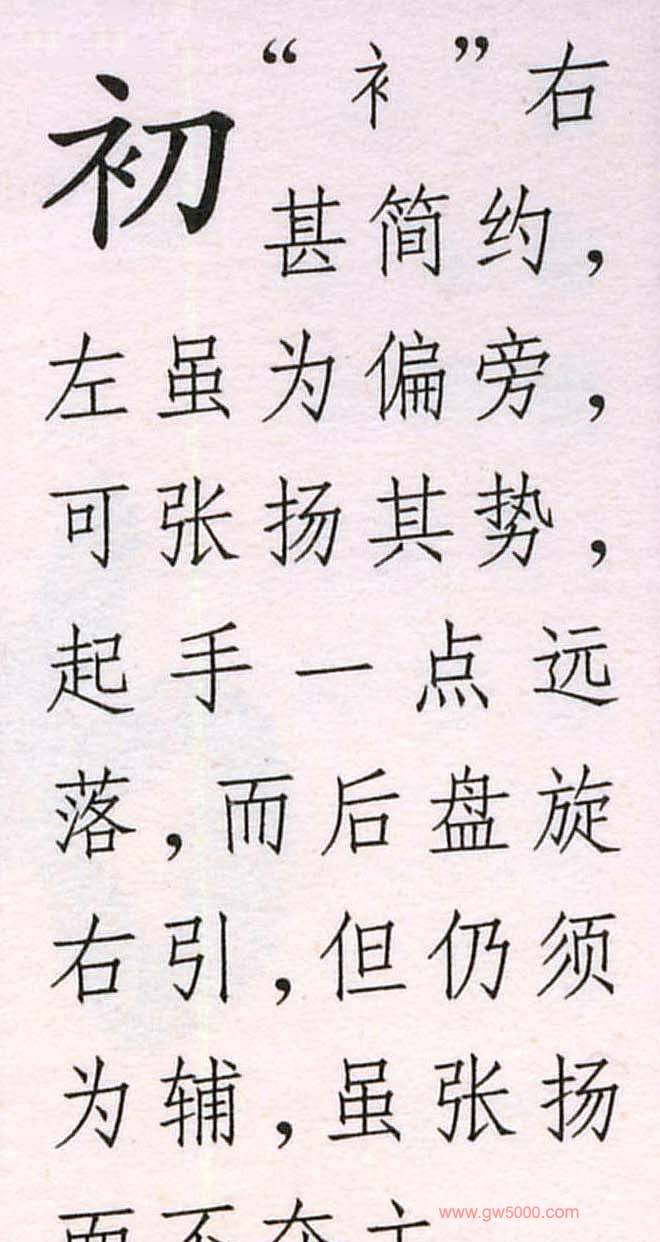 初
“衤”右
甚简约，
左虽为偏旁，
可张扬其势，
起手一点远
落，而后盘旋
右引，但仍须
为辅，虽张扬
而不夺主
www.gw5000.com